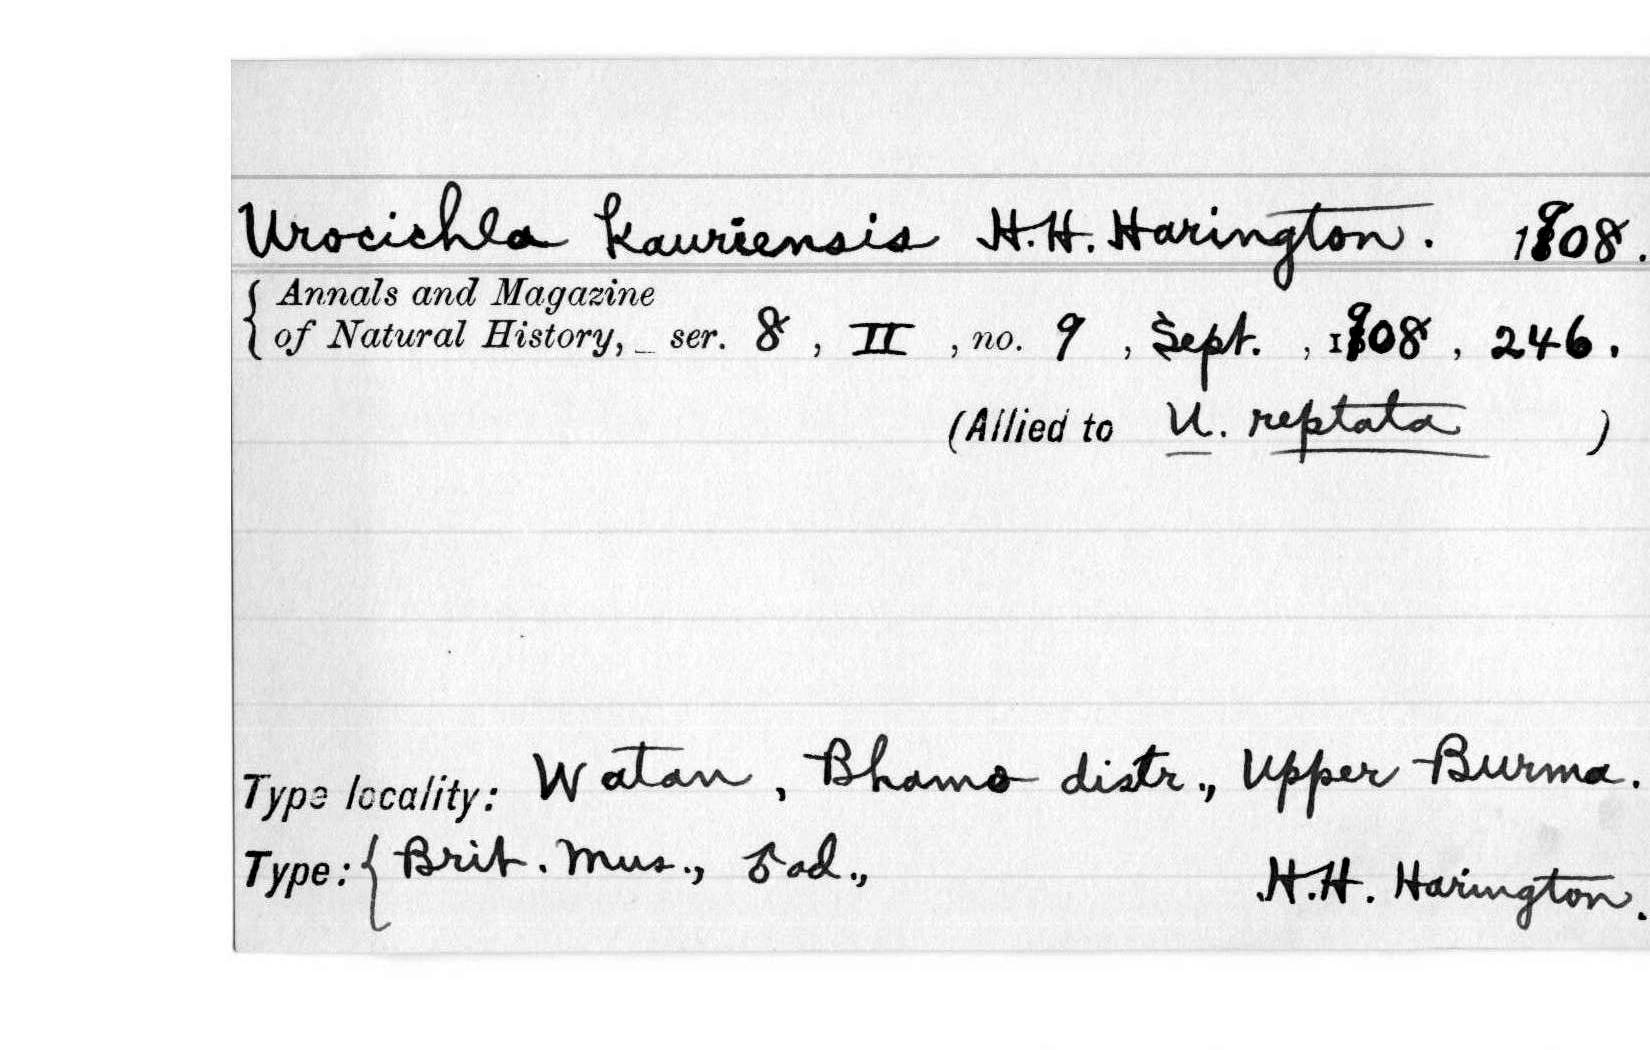 Urocichla kauriensis H.H. Harington. 1908.
{ Annals and Magazine
of Natural History, _ ser. 8, II, no. 9, Sept., 1908, 246.
(Allied to U. reptata )
Type locality: Watan, Bhamo distr., Upper Burma.
Type: { Brit. Mus., ♂ ad., H.H. Harington.